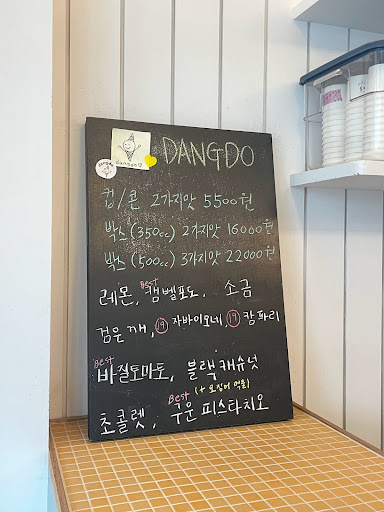 DANGDO
dangdo
컵/콘 2가지맛 5500원
박스(350cc) 2가지맛 16000원
박스(500cc) 3가지맛 22000원
Best
레몬, 캠벨포도, 소금
검은깨, 19 자바이오네, 19 캄파리
Best
바질토마토, 블랙캐슈넛
Best (+ 오징어 먹물)
초콜렛, 구운피스타치오